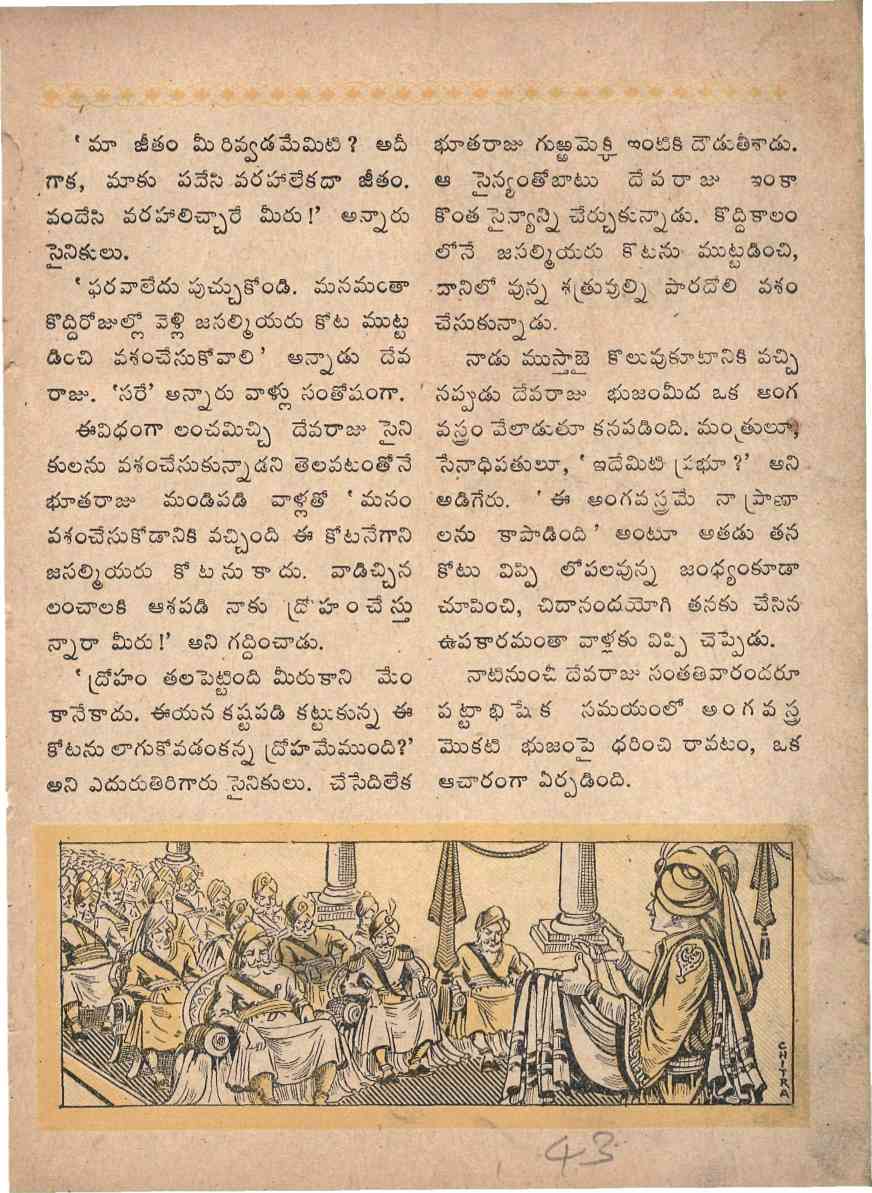 ‘మా జీతం మీ రివ్వడ మేమిటి? అదీ
గాక, మాకు పదేసి వరహాలేకదా జీతం.
వందేసి వరహాలిచ్చారే మీరు!’ అన్నారు
సైనికులు.
‘ఫరవాలేదు పుచ్చుకోండి. మనమంతా
కొద్దిరోజుల్లో వెళ్లి జసల్మియరు కోట ముట్ట
డించి వశంచేసుకోవాలి’ అన్నాడు దేవ
రాజు. ‘సరే’ అన్నారు వాళ్లు సంతోషంగా.
ఈవిధంగా లంచమిచ్చి దేవరాజు సైని
కులను వశంచేసుకున్నాడని తెలవటంతోనే
భూతరాజు మండిపడి వాళ్లతో ‘మనం
వశంచేసుకోడానికి వచ్చింది ఈ కోటనేగాని
జసల్మియరు కోటను కాదు. వాడిచ్చిన
లంచాలకి ఆశపడి నాకు ద్రోహం చేస్తు
న్నారా మీరు!’ అని గద్దించాడు.
‘ద్రోహం తలపెట్టింది మీరుకాని మేం
కానేకాదు. ఈయన కష్టపడి కట్టుకున్న ఈ
కోటను లాగుకోవడంకన్న ద్రోహమేముంది?’
అని ఎదురుతిరిగారు సైనికులు. చేసేదిలేక
భూతరాజు గుఱ్ఱమెక్కి ఇంటికి దౌడుతీశాడు.
ఆ సైన్యంతోబాటు దేవరాజు ఇంకా
కొంత సైన్యాన్ని చేర్చుకున్నాడు. కొద్దికాలం
లోనే జసల్మియరు కోటను ముట్టడించి,
దానిలో వున్న శత్రువుల్ని పారదోలి వశం
చేసుకున్నాడు.
నాడు ముస్తాబై కొలువుకూటానికి వచ్చి
నప్పుడు దేవరాజు భుజంమీద ఒక అంగ
వస్త్రం వేలాడుతూ కనపడింది. మంత్రులూ,
సేనాధిపతులూ, ‘ఇదేమిటి ప్రభూ?’ అని
అడిగేరు. ‘ఈ అంగవస్త్రమే నా ప్రాణా
లను కాపాడింది’ అంటూ అతడు తన
కోటు విప్పి లోపలవున్న జంధ్యంకూడా
చూపించి, చిదానందయోగి తనకు చేసిన
ఉపకారమంతా వాళ్లకు విప్పి చెప్పేడు.
నాటినుంచీ దేవరాజు సంతతివారందరూ
పట్టాభిషేక సమయంలో అంగవస్త్ర
మొకటి భుజంపై ధరించి రావటం, ఒక
ఆచారంగా ఏర్పడింది.
CHITRA
43